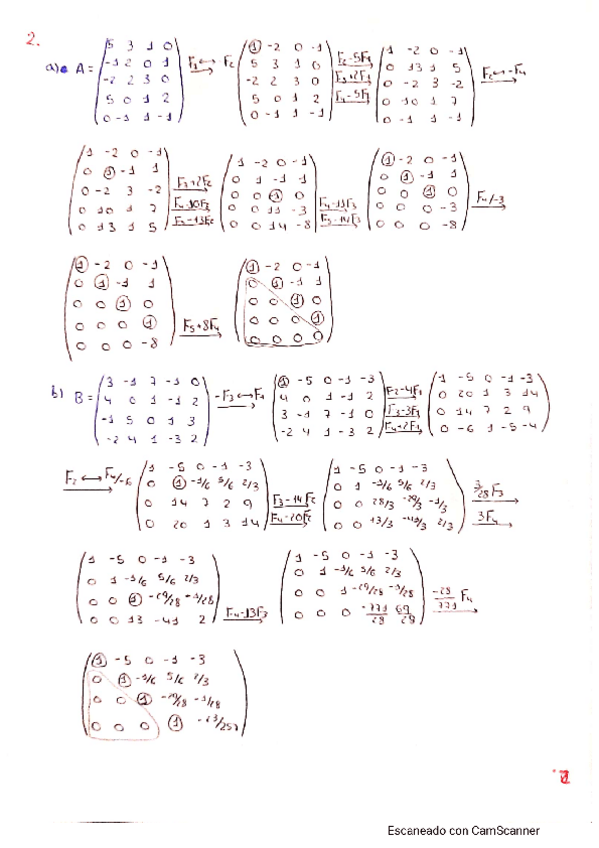 2.
a) A = (5 3 1 0 / -1 2 0 1 / -2 2 3 0 / 5 0 1 2 / 0 -1 1 -1) F1 ↔ -F2 (1 -2 0 -1 / 5 3 1 0 / -2 2 3 0 / 5 0 1 2 / 0 -1 1 -1) F2-5F1 F3+2F1 F4-5F1 (1 -2 0 -1 / 0 13 1 5 / 0 -2 3 -2 / 0 10 1 7 / 0 -1 1 -1) F2 ↔ -F4
(1 -2 0 -1 / 0 1 -1 1 / 0 -2 3 -2 / 0 10 1 7 / 0 13 1 5) F3+2F2 F4-10F2 F5-13F2 (1 -2 0 -1 / 0 1 -1 1 / 0 0 1 0 / 0 0 11 -3 / 0 0 14 -8) F4-11F3 F5-14F3 (1 -2 0 -1 / 0 1 -1 1 / 0 0 1 0 / 0 0 0 -3 / 0 0 0 -8) F4/-3
(1 -2 0 -1 / 0 1 -1 1 / 0 0 1 0 / 0 0 0 1 / 0 0 0 -8) F5+8F4 (1 -2 0 -1 / 0 1 -1 1 / 0 0 1 0 / 0 0 0 1 / 0 0 0 0)
b) B = (3 -1 7 -1 0 / 4 0 1 -1 2 / -1 5 0 1 3 / -2 4 1 -3 2) -F3 ↔ F1 (1 -5 0 -1 -3 / 4 0 1 -1 2 / 3 -1 7 -1 0 / -2 4 1 -3 2) F2-4F1 F3-3F1 F4+2F1 (1 -5 0 -1 -3 / 0 20 1 3 14 / 0 14 7 2 9 / 0 -6 1 -5 -4)
F2 ↔ F4/-6 (1 -5 0 -1 -3 / 0 1 -1/6 5/6 2/3 / 0 14 7 2 9 / 0 20 1 3 14) F3-14F2 F4-20F2 (1 -5 0 -1 -3 / 0 1 -1/6 5/6 2/3 / 0 0 28/3 -29/3 -1/3 / 0 0 13/3 -41/3 2/3) 3/28 F3 3F4
(1 -5 0 -1 -3 / 0 1 -1/6 5/6 2/3 / 0 0 1 -29/28 -1/28 / 0 0 13 -41 2) F4-13F3 (1 -5 0 -1 -3 / 0 1 -1/6 5/6 2/3 / 0 0 1 -29/28 -1/28 / 0 0 0 -771/28 69/28) -28/771 F4
(1 -5 0 -1 -3 / 0 1 -1/6 5/6 2/3 / 0 0 1 -29/28 -1/28 / 0 0 0 1 -23/257)
Escaneado con CamScanner